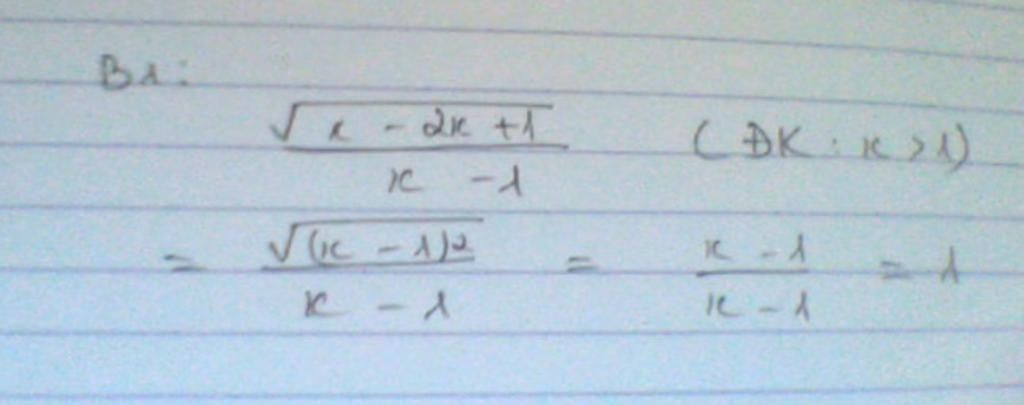 B1:
√(x - 2x + 1) / (x - 1) (ĐK: x > 1)
= √((x - 1)²) / (x - 1) = (x - 1) / (x - 1) = 1